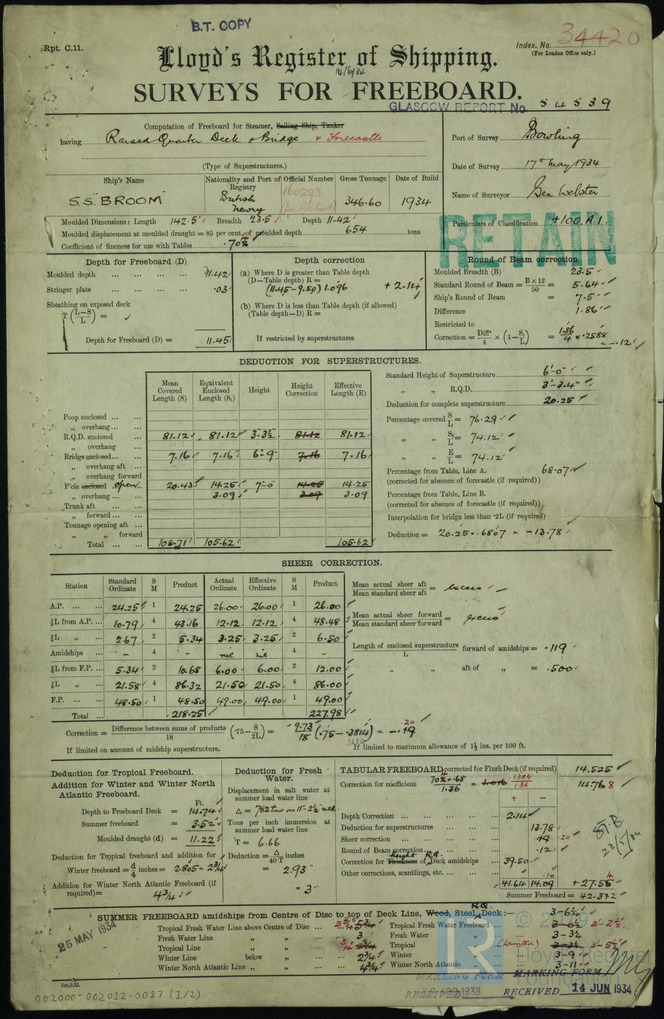 B.T. COPY
Rpt. C.11.
Index. No. 34420
(For London Office only.)
Lloyd's Register of Shipping.
14/6/34
SURVEYS FOR FREEBOARD.
GLASGOW REPORT No. 54539
Computation of Freeboard for Steamer, Sailing Ship, Tanker
having Raised Quarter Deck & Bridge & Forecastle
(Type of Superstructures.)
Port of Survey Bowling
Date of Survey 17th May 1934
Name of Surveyor Geo Webster
Particulars of Classification +100.A.1.
RETAIN
Ship's Name
Nationality and Port of Registry
Official Number
Gross Tonnage
Date of Build
S.S. BROOM
British
Newry
160293
346.60
1934
Moulded Dimensions: Length 142.5 Breadth 23.5 Depth 11.42
Moulded displacement at moulded draught = 85 per cent. of moulded depth 654 tons
Coefficient of fineness for use with Tables .70
Depth for Freeboard (D)
Moulded depth 11.42
Stringer plate .03
Sheathing on exposed deck
T (L-S / L) =
Depth for Freeboard (D) = 11.45
Depth correction
(a) Where D is greater than Table depth
(D-Table depth) R =
(11.45-9.50) 1.096 + 2.14
(b) Where D is less than Table depth (if allowed)
(Table depth-D) R =
If restricted by superstructures
Round of Beam correction
Moulded Breadth (B) 23.5
Standard Round of Beam = B×12 / 50 = 5.64
Ship's Round of Beam = 7.5
Difference 1.86
Restricted to
Correction = Diff / 4 × (1 - S₁/L) = 1.86 / 4 × .2588 = -.12
DEDUCTION FOR SUPERSTRUCTURES.
Mean Covered Length (S)
Equivalent Enclosed Length (S₁)
Height
Height Correction
Effective Length (E)
Poop enclosed
„ overhang
R.Q.D. enclosed 81.12 81.12 3-3½ 81.12 81.12
„ overhang
Bridge enclosed 7.16 7.16 6-9 7.16 7.16
„ overhang aft
„ overhang forward
F'cle enclosed open 20.43 14.25 7-0 14.25 14.25
„ overhang 3.09 3.09 3.09
Trunk aft
„ forward
Tonnage opening aft
„ „ forward
Total 108.71 105.62 105.62
Standard Height of Superstructure 6'-0"
„ „ R.Q.D. 3'-3.4"
Deduction for complete superstructure 20.25
Percentage covered S/L = 76.29
„ „ S₁/L = 74.12
„ „ E/L = 74.12
Percentage from Table, Line A. 68.07
(corrected for absence of forecastle (if required))
Percentage from Table, Line B.
(corrected for absence of forecastle (if required))
Interpolation for bridge less than ·2L (if required)
Deduction = 20.25 × .6807 = -13.78
SHEER CORRECTION.
Station
Standard Ordinate
S M
Product
Actual Ordinate
Effective Ordinate
S M
Product
A.P. 24.25 1 24.25 26.00 26.00 1 26.00
⅙L from A.P. 10.79 4 43.16 12.12 12.12 4 48.48
⅓L „ 2.67 2 5.34 3.25 3.25 2 6.50
Amidships - 4 - nil nil 4 -
⅓L from F.P. 5.34 2 10.68 6.00 6.00 2 12.00
⅙L „ 21.58 4 86.32 21.50 21.50 4 86.00
F.P. 48.50 1 48.50 49.00 49.00 1 49.00
Total 218.25 227.98
Mean actual sheer aft / Mean standard sheer aft = excess
Mean actual sheer forward / Mean standard sheer forward = excess
Length of enclosed superstructure / L forward of amidships = .119
„ „ aft of „ = .500
Correction = Difference between sums of products / 18 (·75 - S/2L) = -9.73 / 18 (.75-.3814) = -.19 20
If limited on account of midship superstructure.
If limited to maximum allowance of 1½ ins. per 100 ft.
Deduction for Tropical Freeboard.
Addition for Winter and Winter North Atlantic Freeboard.
Ft.
Depth to Freeboard Deck = 14.74
Summer freeboard = 3.52
Moulded draught (d) = 11.22
Deduction for Tropical freeboard and addition for
Winter freeboard = d/4 inches = 2.805 - 2¾
Addition for Winter North Atlantic Freeboard (if required) = 4¾
Deduction for Fresh Water.
Displacement in salt water at summer load water line
Δ =
Tons per inch immersion at summer load water line
T = 6.66
Deduction = Δ / 40T inches
= 2.93
- 3
TABULAR FREEBOARD corrected for Flush Deck (if required) 14.525
Correction for coefficient .70+.68 / 1.36 1.384 / 1.36 14.768
+ -
Depth Correction 2.14
Deduction for superstructures 13.78
Sheer correction .19 .20
Round of Beam correction .12
Correction for Thickness of Deck amidships height RQ 39.50
Other corrections, scantlings, etc.
41.64 14.09 + 27.55
Summer Freeboard = 42.372
87.B
23/5/34
SUMMER FREEBOARD amidships from Centre of Disc to top of Deck Line, Wood, Steel, RQ Deck:— 3-6¼
Tropical Fresh Water Line above Centre of Disc
Fresh Water Line „ „ 3
Tropical Line „ „
Winter Line below „ 2¾
Winter North Atlantic Line „ „ 4¾
Tropical Fresh Water 3-2½
Fresh Water „ 3-3½
Tropical „
Winter „ 3-9
Winter North Atlantic „ 3-11
25 MAY 1934
MARKING FORM
RECEIVED
MARKING FORM
RECEIVED 14 JUN 1934
002000-002012-0087 (1/2)